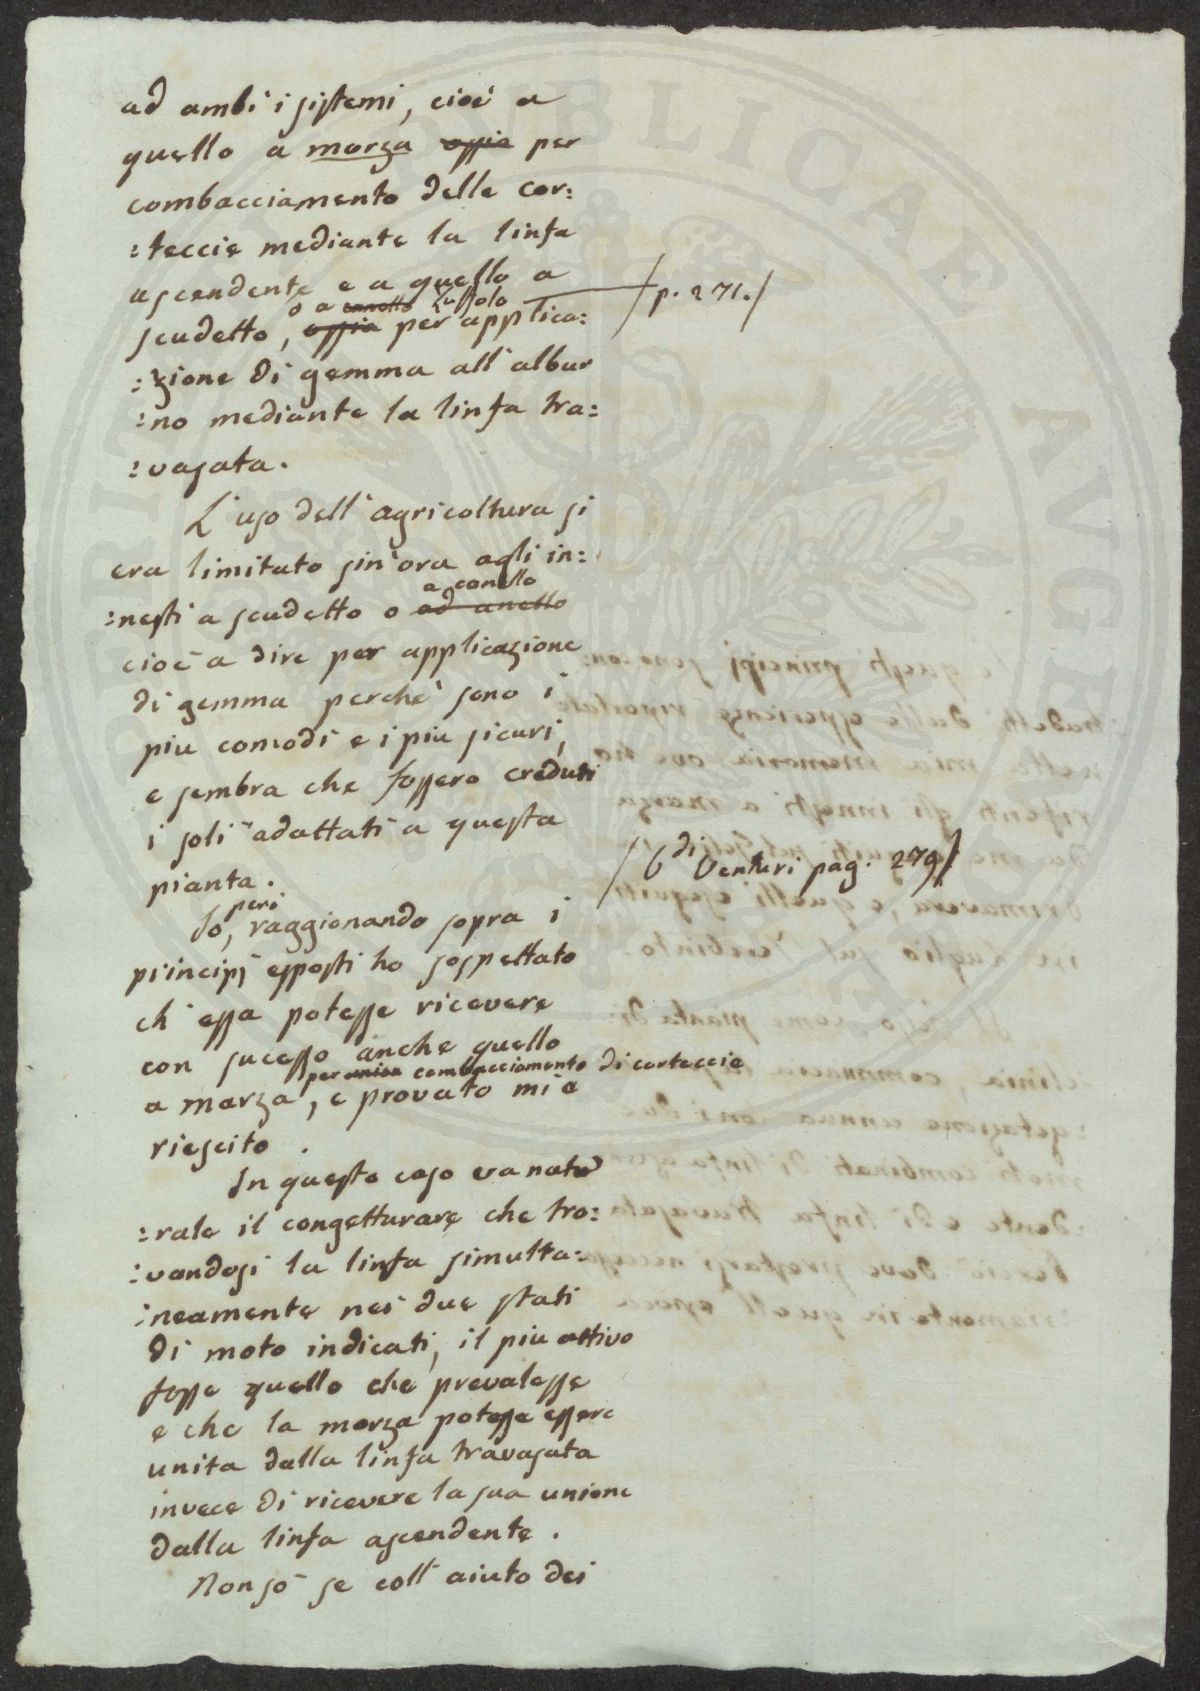 ad ambi i sistemi, cioè a
quello a marza ossia per
combacciamento delle cor:
:teccie mediante la linfa
ascendente e a quello a
o a canello Zuffolo
/p. 271./
scudetto, ossia per applica:
:zione di gemma all'albur
:no mediante la linfa tra:
:vasata.
L'uso dell'agricoltura si
era limitato sin'ora agli in:
a canello
:nesti a scudetto o ad anello
cioè a dire per applicazione
di gemma perchè sono i
piu comodi e i piu sicuri,
e sembra che fossero creduti
i soli adattati a questa
pianta.
/ Venturi pag. 279/
però
Io, raggionando sopra i
principj esposti ho sospettato
ch'essa potesse ricevere
con sucesso anche quello
per union combacciamento di corteccie
a marza, e provato mi è
riescito.
In questo caso era natu
:rale il congetturare che tro:
:vandosi la linfa simulta:
:neamente nei due stati
di moto indicati, il piu attivo
fosse quello che prevalesse
e che la marza potesse essere
unita dalla linfa travasata
invece di ricevere la sua unione
dalla linfa ascendente.
Non so se coll'aiuto dei